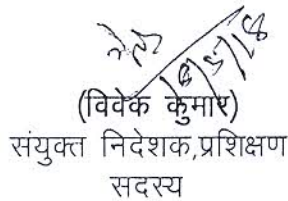 (विवेक कुमार)
संयुक्त निदेशक,प्रशिक्षण
सदस्य